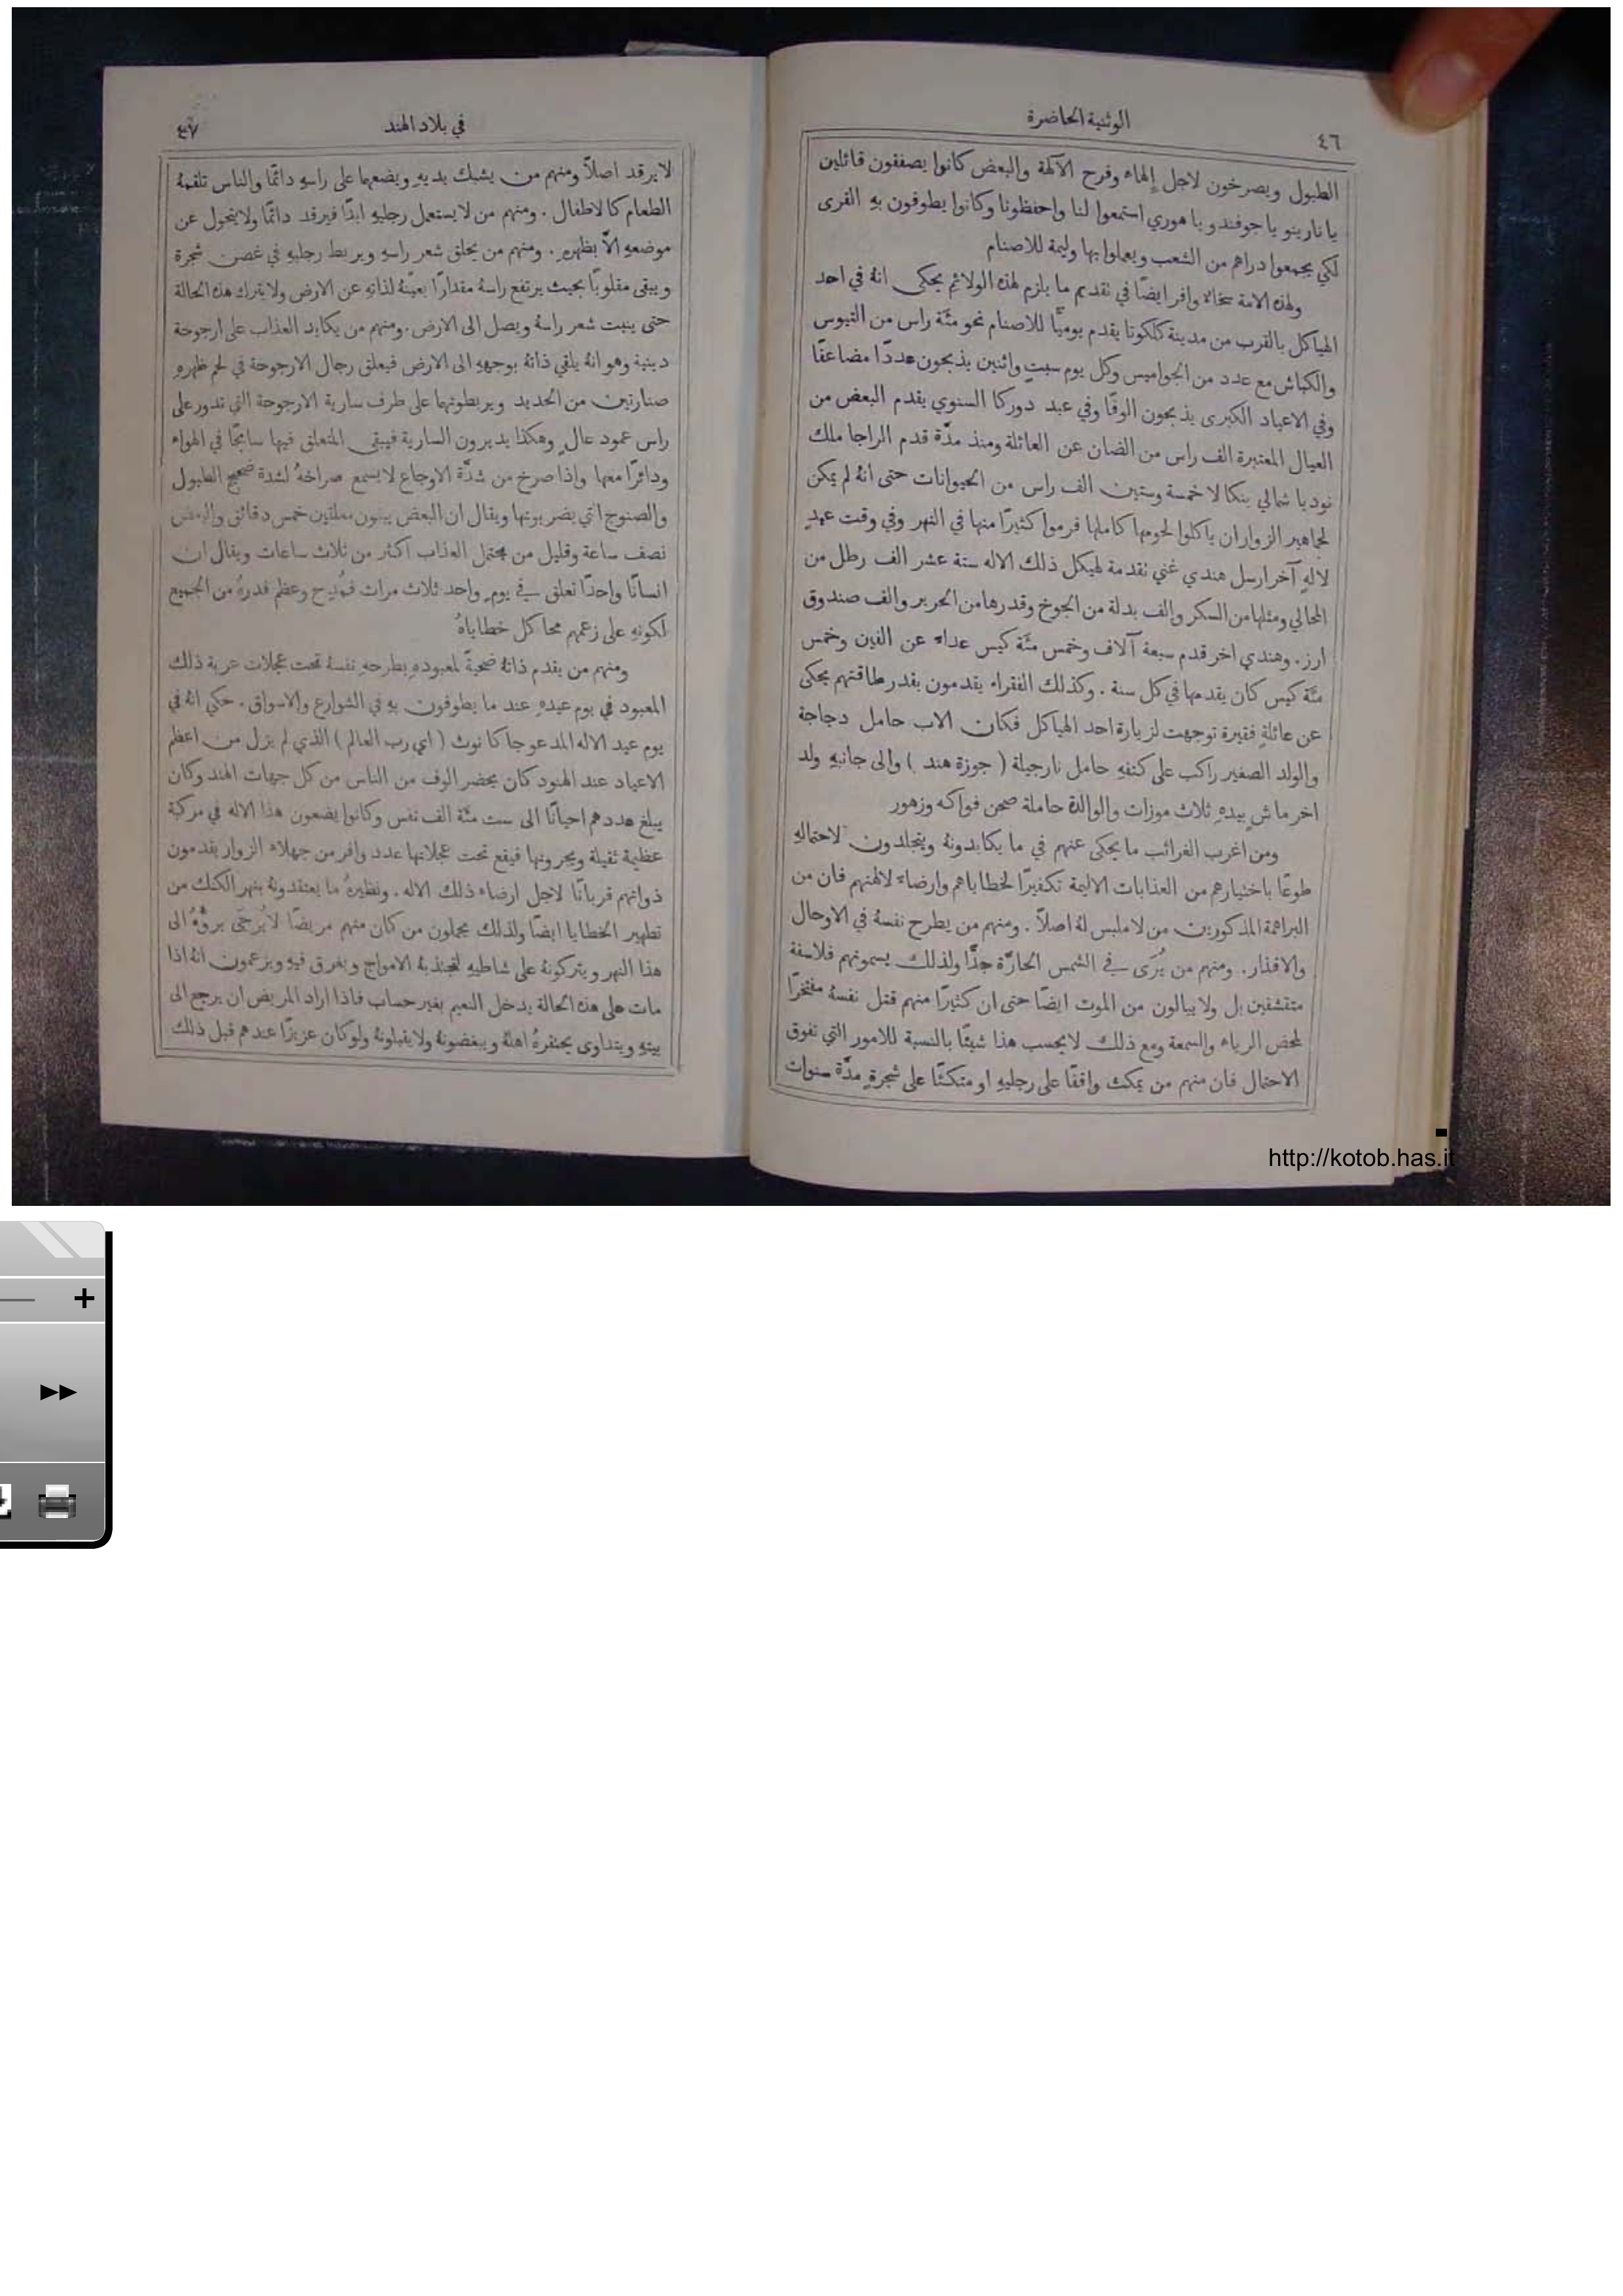 ٤٦
الوثنية الحاضرة
الطبول ويصرخون لاجل إلهاء وفرح الآلهة والبعض كانوا يصفقون قائلين
يا نارينو يا جوفندو يا هوري استمعوا لنا واحفظونا وكانوا يطوفون بهِ القرى
لكي يجمعوا دراهم من الشعب ويعملوا بها وليمة للاصنام
ولهذه الامة سخاءٌ وافر ايضًا في تقديم ما يلزم لهذه الولائم يحكى انهُ في احد
الهياكل بالقرب من مدينة كلكوتا يقدم يوميًّا للاصنام نحو مئة راس من التيوس
والكباش مع عدد من الجواميس وكل يوم سبتٍ واثنين يذبحون عددًا مضاعفًا
وفي الاعياد الكبرى يذبحون الوفًا وفي عيد دوركا السنوي يقدم البعض من
العيال المعتبرة الف راس من الضان عن العائلة ومنذ مدَّة قدم الراجا ملك
نوديا شمالي بنكالا خمسة وستين الف راس من الحيوانات حتى انهُ لم يمكن
لجماهير الزوار ان ياكلوا لحومها كاملها فرموا كثيرًا منها في النهر وفي وقت عيدٍ
لالهٍ آخر ارسل هندي غني تقدمة لهيكل ذلك الاله ستة عشر الف رطل من
الحالي ومثلها من السكر والف بدلة من الجوخ وقدرها من الحرير والف صندوق
ارز. وهندي اخر قدم سبعة آلاف وخمس مئَة كيس عداء عن الفين وخمس
مئَة كيس كان يقدمها في كل سنة . وكذلك الفقراء يقدمون بقدر طاقتهم يحكى
عن عائلةٍ فقيرة توجهت لزيارة احد الهياكل فكان الاب حامل دجاجة
والولد الصغير راكب على كتفهِ حامل نارجيلة ( جوزة هند ) والى جانبهِ ولد
اخر ماشٍ بيدهِ ثلاث موزات والوالدة حاملة صحن فواكه وزهور
ومن اغرب الغرائب ما يحكى عنهم في ما يكابدونهُ ويتجلدون لاحتمالهِ
طوعًا باختيارهم من العذابات الاليمة تكفيرًا لخطاياهم وارضاءً لالهتهم فان من
البراهمة المذكورين من لا ملبس لهُ اصلًا . ومنهم من يطرح نفسهُ في الاوحال
والاقذار. ومنهم من يُرَى في الشمس الحارَّة جدًّا ولذلك يسمونهم فلاسفة
متقشفين بل ولا يبالون من الموت ايضًا حتى ان كثيرًا منهم قتل نفسهُ مفتخرًا
لمحض الرياء والسمعة ومع ذلك لا يحسب هذا شيئًا بالنسبة للامور التي تفوق
الاحتمال فان منهم من يمكث واقفًا على رجليهِ او متكئًا على شجرةٍ مدَّة سنوات
في بلاد الهند
٤٧
لا يرقد اصلًا ومنهم من يشبك يديهِ ويضعهما على راسهِ دائمًا والناس تلقمهُ
الطعام كالاطفال . ومنهم من لا يستعمل رجليهِ ابدًا فيرقد دائمًا ولا يتحول عن
موضعهِ الَّا بظهرهِ . ومنهم من يحلق شعر راسهِ ويربط رجليهِ في غصن شجرة
ويبقى مقلوبًا بحيث يرتفع راسهُ مقدارًا يعيّنهُ لذاتهِ عن الارض ولا يترك هذه الحالة
حتى ينبت شعر راسهُ ويصل الى الارض. ومنهم من يكابد العذاب على ارجوحة
دينية وهو انهُ يلقي ذاتهُ بوجههِ الى الارض فيعلق رجال الارجوحة في لحم ظهرهِ
صنارتين من الحديد ويربطونهما على طرف سارية الارجوحة التي تدور على
راس عمود عالٍ وهكذا يديرون السارية فيبقى المتعلق فيها سابحًا في الهواء
ودائرًا معها واذا صرخ من شدَّة الاوجاع لا يسمع صراخهُ لشدة ضجيج الطبول
والصنوج التي يضربونها ويقال ان البعض يبقون معلقين خمس دقائق والبعض
نصف ساعة وقليل من يحتمل العذاب اكثر من ثلاث ساعات ويقال ان
انسانًا واحدًا تعلق في يومٍ واحد ثلاث مرات فمُدِح وعظم قدرهُ من الجميع
لكونهِ على زعمهم محا كل خطاياهُ
ومنهم من يقدم ذاتهُ ضحيةً لمعبودهِ بطرحهِ نفسهُ تحت عجلات عربة ذلك
المعبود في يوم عيدهِ عند ما يطوفون بهِ في الشوارع والاسواق . حكي انهُ في
يوم عيد الاله المدعو جاكا نوث ( اي رب العالم ) الذي لم يزل من اعظم
الاعياد عند الهنود كان يحضر الوف من الناس من كل جهات الهند وكان
يبلغ عددهم احيانًا الى ست مئَة الف نفس وكانوا يضعون هذا الاله في مركبة
عظيمة ثقيلة ويجرونها فيقع تحت عجلاتها عدد وافر من جهلاء الزوار يقدمون
ذواتهم قربانًا لاجل ارضاء ذلك الاله . ونظيرهُ ما يعتقدونهُ بنهر الكنك من
تطهير الخطايا ايضًا ولذلك يحملون من كان منهم مريضًا لا يُرجَى برؤُهُ الى
هذا النهر ويتركونهُ على شاطيهِ لتجتذبهُ الامواج ويغرق فيهِ ويزعمون انهُ اذا
مات على هذه الحالة يدخل النعيم بغير حساب فاذا اراد المريض ان يرجع الى
بيتهِ ويتداوى يحتقرهُ اهلهُ ويبغضونهُ ولا يقبلونهُ ولو كان عزيزًا عندهم قبل ذلك
http://kotob.has.it